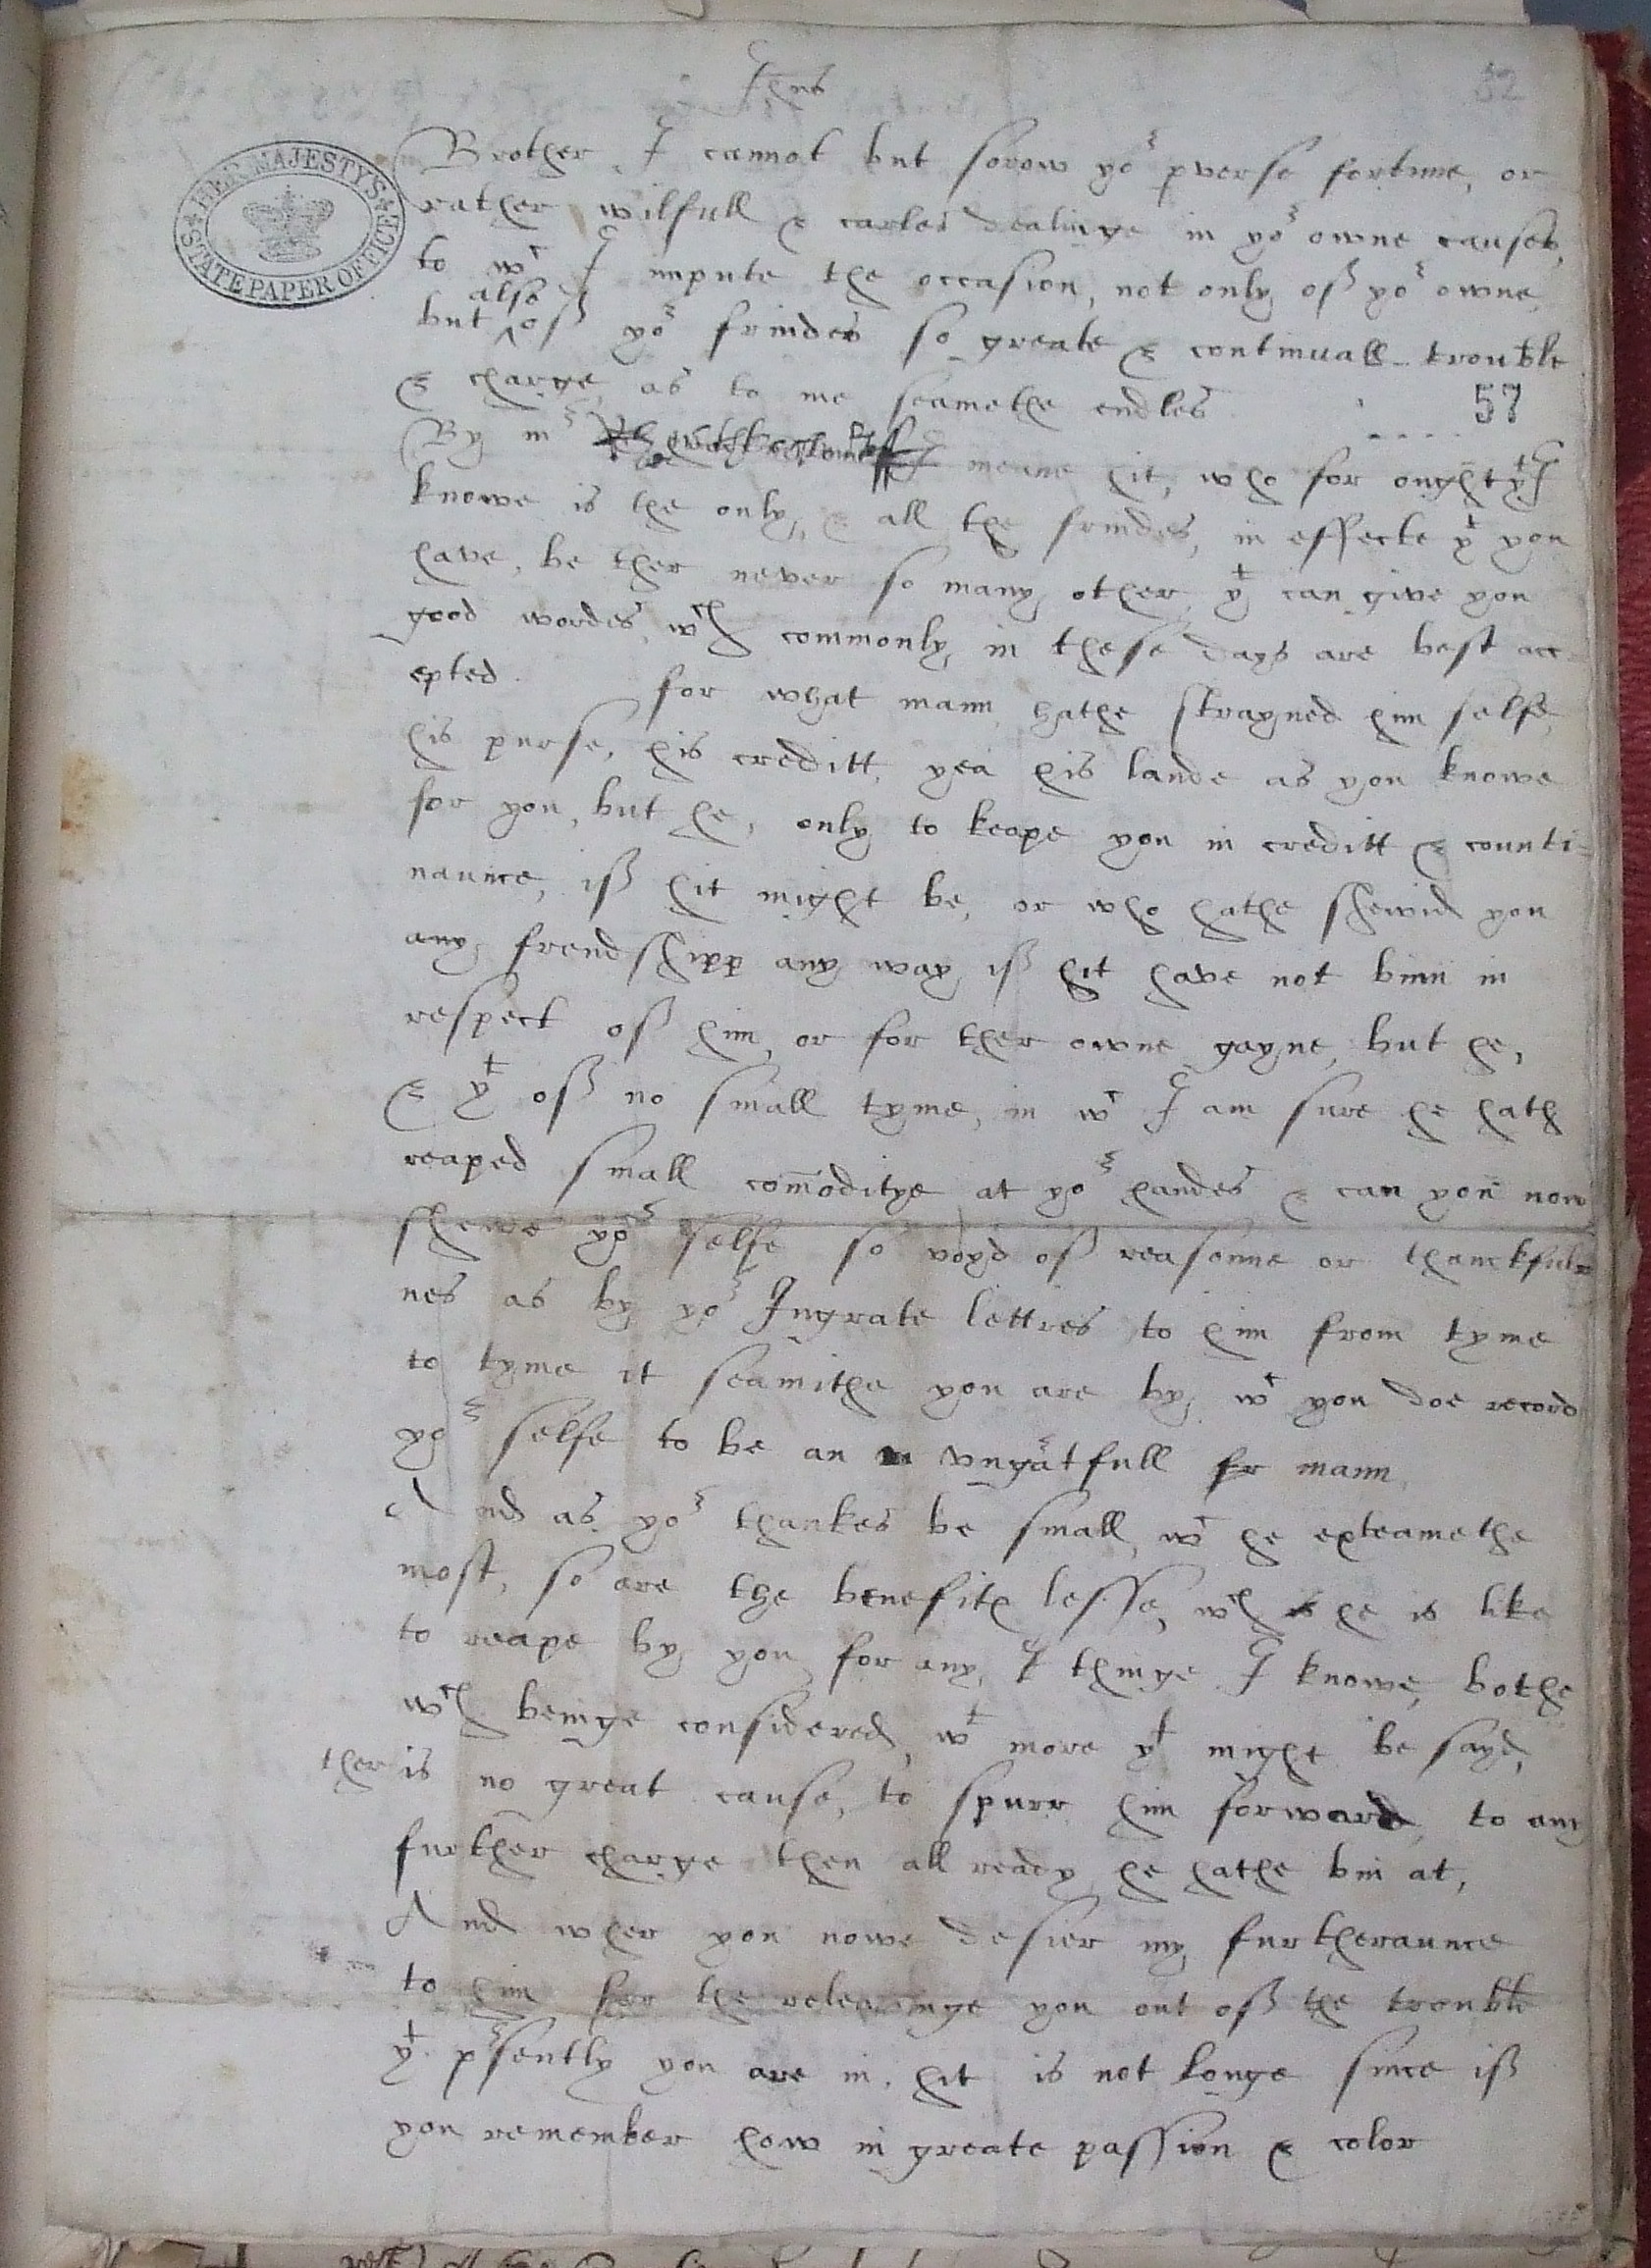 Ihus
52
HER MAJESTY'S STATE PAPER OFFICE
Brother I cannot but sorow yor pverse fortune, or
rather wilfull & carles dealinge in yor owne causes,
to wc I impute the occasion, not only off yor owne,
but ^also off yor frindes so greate & continuall trouble
& charge as to me seamethe endles
57
By mr I meane hit, who for ought yt I
knowe is the only, & all the frindes, in effecte yt you
have, be ther never so many other yt can give you
good wordes, wch commonly in these days are best acc
epted. for what mann hathe strayned him selfe
his purse, his creditt, yea his lande as you knowe
for you, but he, only to keape you in creditt & counti-
naunce, iff hit might be, or who hathe shewid you
any frendshipp any way iff hit have not binn in
respect off him, or for ther owne gayne, but he,
& yt off no small tyme, in wc I am sure he hath
reaped small comoditye at yor handes & can you now
shewe yor selfe so voyd off reasonne or thanckfull
nes as by yor Ingrate lettres to him from tyme
to tyme it seamithe you are by wc you doe record
yor selfe to be an ungratfull fr mann
And as yor thankes be small, wc he exteamethe
most, so are the benefits lesse, wch he is like
to reape by you for any thinge I knowe, bothe
wch beinge considered, wt more yt might be sayd,
ther is no great cause, to spurr him forward, to any
further charge then all ready he hathe bin at,
And wher you nowe desier my furtheraunce
to him for the releasinge you out off the trouble
yt prsently you are in. hit is not longe since iff
you remember how in greate passion & color